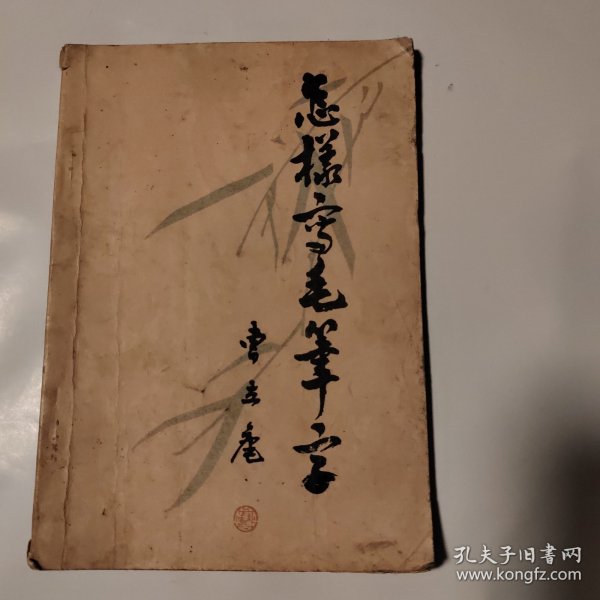 怎樣写毛筆字
曹立庵
孔夫子旧書网
www.kongfz.com